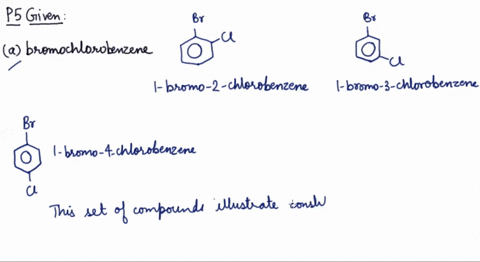 P5 Given:
Br
Cl
Br
(a) bromochlorobenzene
Cl
1-bromo-2-chlorobenzene
1-bromo-3-chlorobenzene
Br
1-bromo-4-chlorobenzene
Cl
This set of compounds illustrate